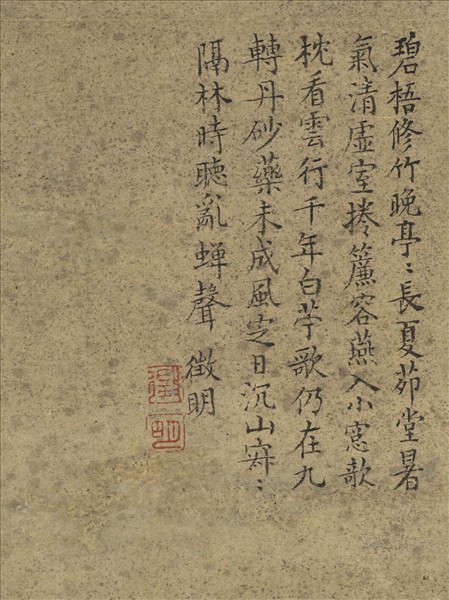 碧梧修竹晚亭〻長夏茆堂暑
氣清虛室捲簾容燕入小窓欹
枕看雲行千年白苧歌仍在九
轉丹砂藥未成風定日沉山寂〻
隔林時聽亂蟬聲 徵明
徵
明